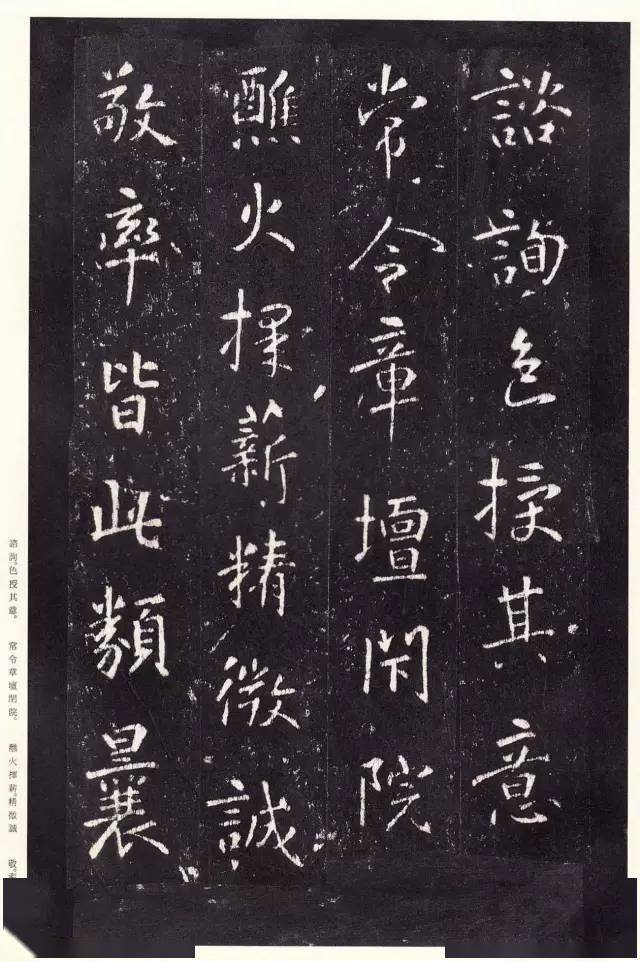 諮詢色授其意
常令章壇閑院
醮火擇薪精微誠
敬率皆此類曩
諮詢。色授其意。 常令章壇閑院。 醮火擇薪。精微誠 敬。